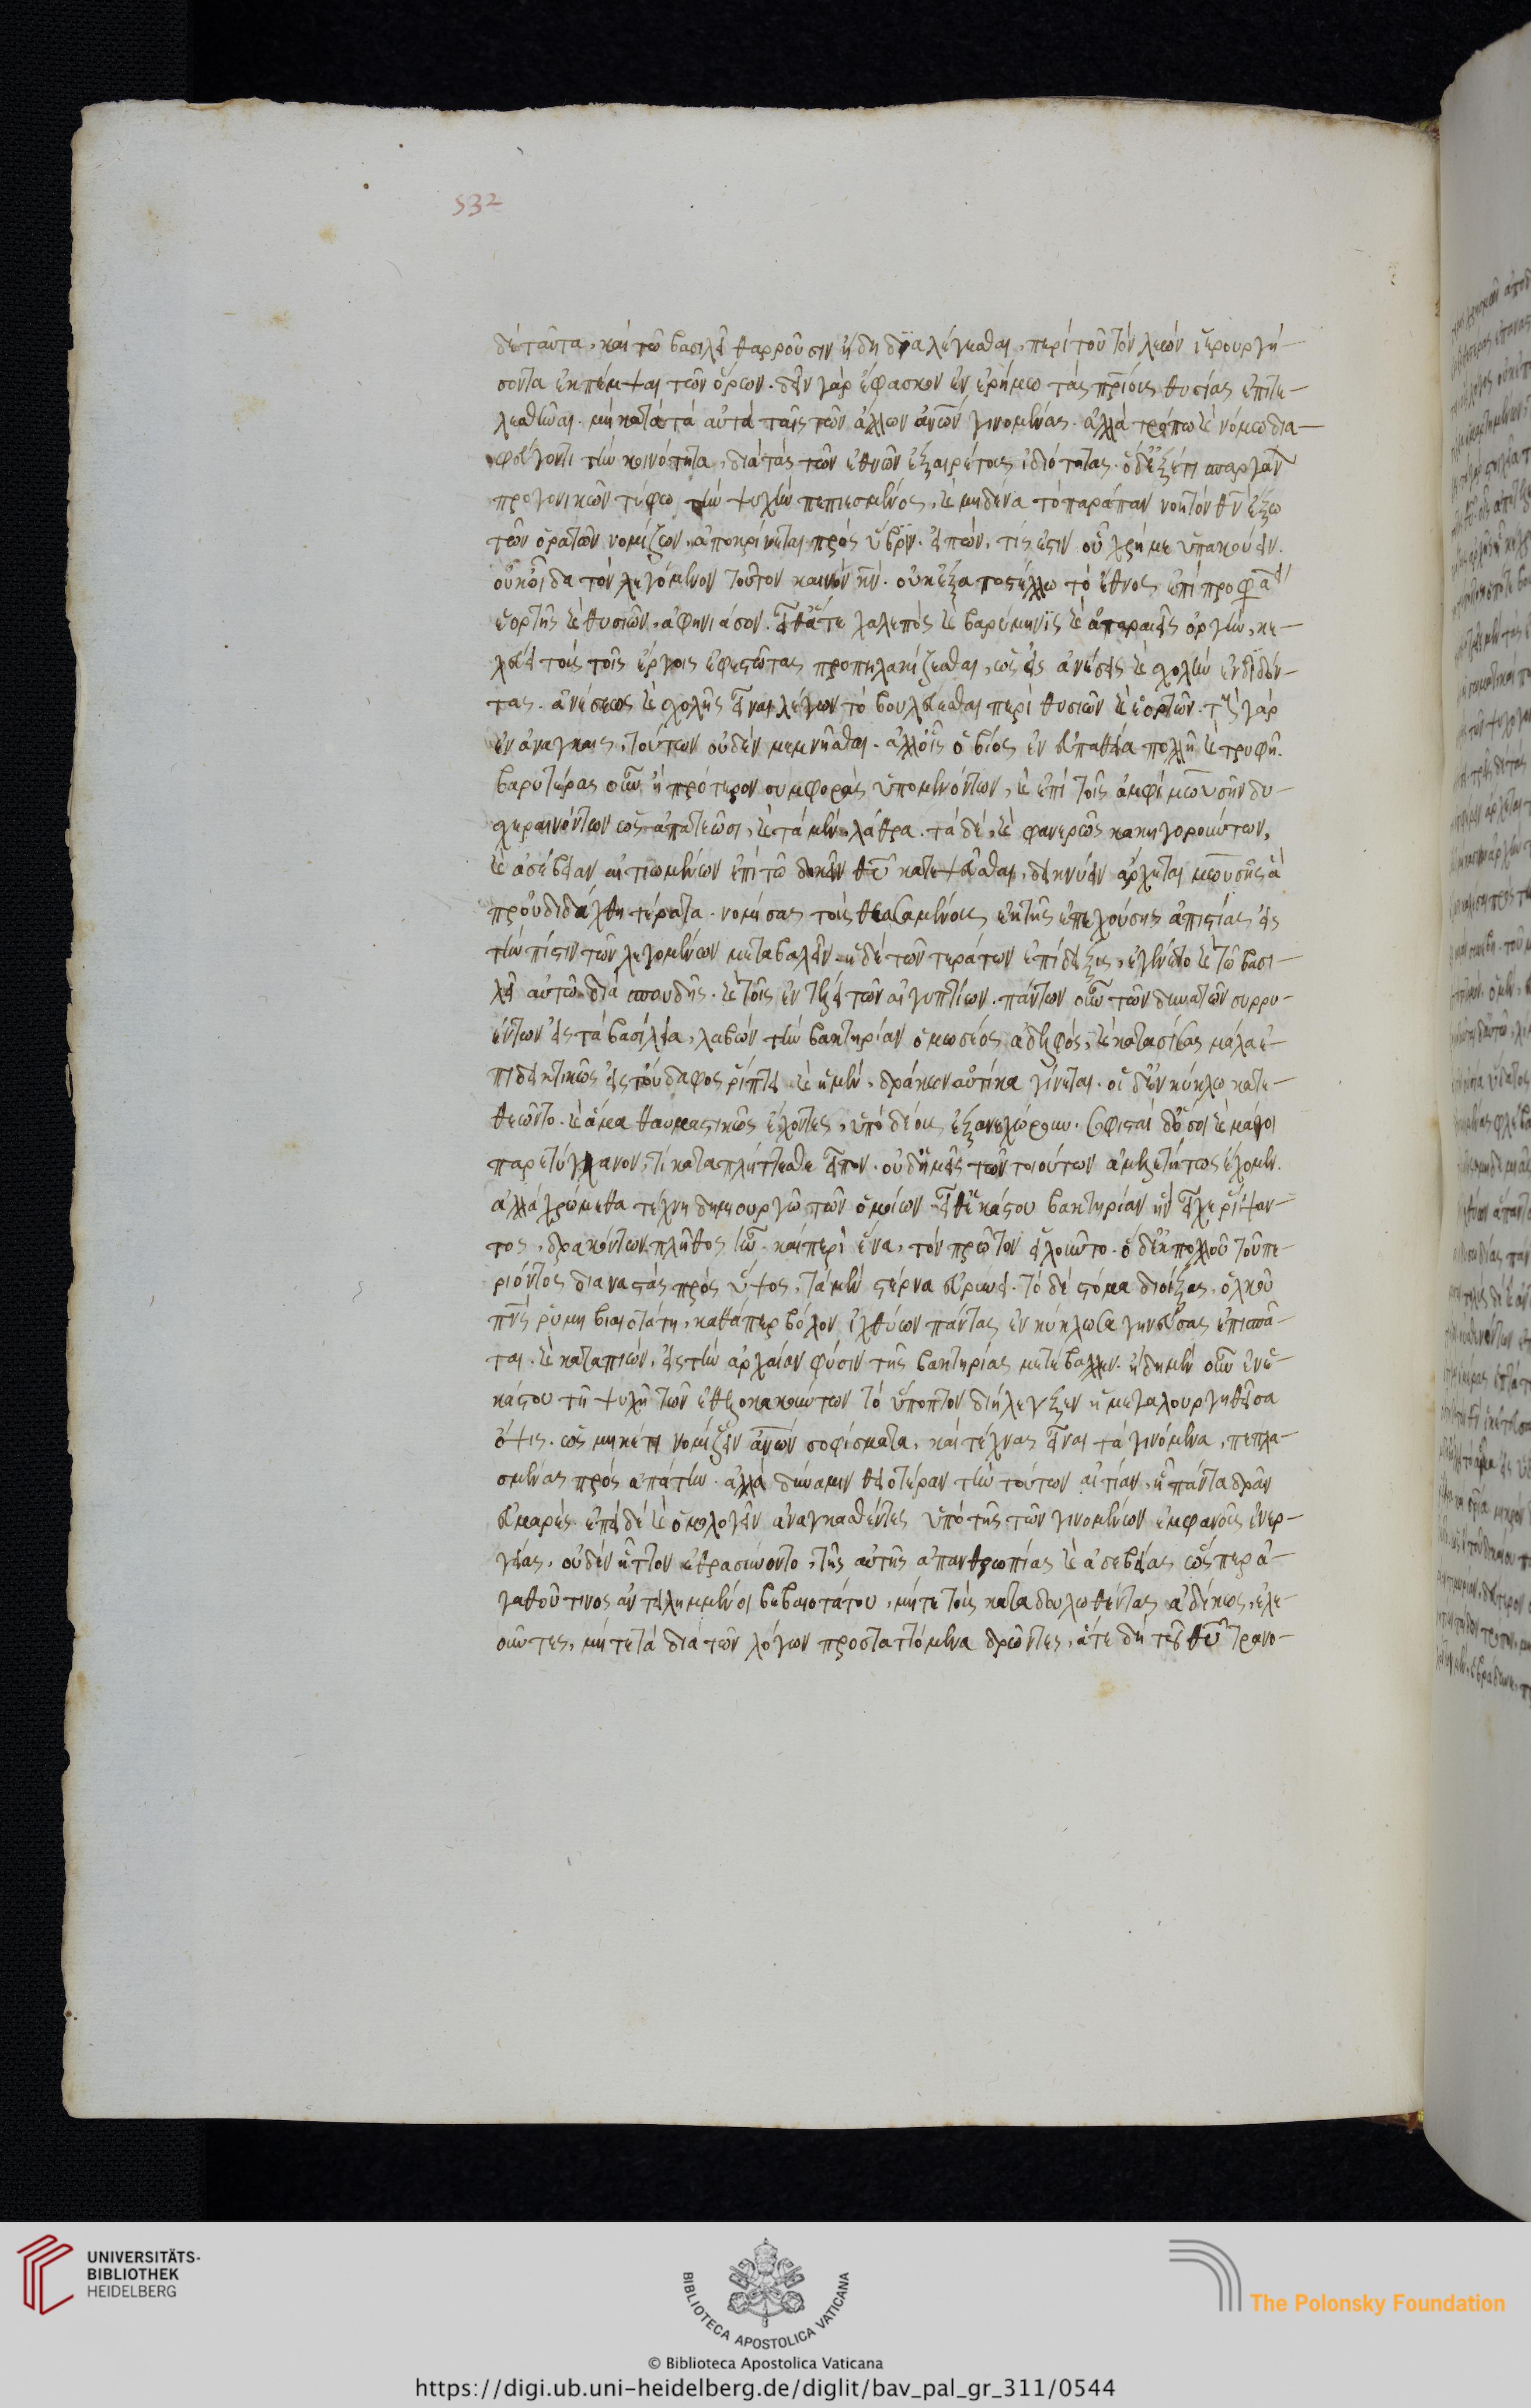 532
δὲ ταῦτα, καὶ τῶ βασιλεῖ θαρροῦσιν ἤδη διαλέγεσθαι, περὶ τοῦ τὸν λεὼν ἱερουργή-
σοντα ἐκπέμψαι τῶν ὅρων. δεῖν γὰρ ἔφασκον ἐν ἐρήμω τὰς πρίους θυσίας ἐπιτε-
λεσθῆναι. μὴ κατὰ τὰ αὐτὰ ταῖς τῶν ἄλλων ἀνων γινομένας. ἀλλὰ τρόπω καὶ νόμω δια-
φεύγοντι τὴν κοινότητα, διὰ τὰς τῶν ἐθνῶν ἐξαιρέτους ἰδιότητας. ὁ δ' ἐξέτι σπαργάν
προγονικῶν τύφω τὴν ψυχὴν πεπιεσμένος, καὶ μηδένα τὸ παράπαν νοητὸν θν ἔξω
τῶν ὁρατῶν νομίζων, ἀποκρίνεται πρὸς ὕβριν. εἰπών, τίς ἐστιν οὗ χρή με ὑπακούειν.
οὐκ οἶδα τὸν λεγόμενον τοῦτον καινὸν κν. οὐκ ἐξαποστέλλω τὸ ἔθνος ἐπὶ προφά
ἑορτῆς καὶ θυσιῶν, ἀφηνιάσον. εἶθ' ἅτε χαλεπὸς καὶ βαρύμηνις καὶ ἀπαραιτ ὀργὴν, κε-
λεύει τοὺς τοῖς ἔργοις ἐφεστῶτας προπηλακίζεσθαι, ὡς εἰς ἀνέσεις καὶ σχολὴν ἐνδιδόν-
τας. ἀνέσεως καὶ σχολῆς εἶναι λέγων τὸ βουλεύεσθαι περὶ θυσιῶν καὶ ἑορτῶν. τοὺς γὰρ
ἐν ἀνάγκαις, τούτων οὐδὲν μεμνῆσθαι. ἀλλ' οἷς ὁ βίος ἐν εὐπαθεία πολλῆ καὶ τρυφῆ.
βαρυτέρας οὖν ἢ πρότερον συμφορὰς ὑπομενόντων, καὶ ἐπὶ τοῖς ἀμφὶ μωυσῆν δυ-
σχεραινόντων ὡς ἀπατεῶσι, καὶ τὰ μὲν λάθρα. τὰ δὲ, καὶ φανερῶς κακηγορούντων,
καὶ ἀσέβειαν αἰτιωμένων ἐπὶ τῶ δοκεῖν θυ κατεψεῦσθαι, δεικνύειν ἄρχεται μωυσῆς ἃ
προὐδιδάχθη τέρατα. νομίσας τοὺς θεασαμένους ἐκ τῆς ἐπεχούσης ἀπιστίας εἰς
τὴν πίστιν τῶν λεγομένων μεταβαλεῖν. ἡ δὲ τῶν τεράτων ἐπίδειξις, ἐγένετο καὶ τῶ βασι-
λεῖ αὐτῶ διὰ σπουδῆς. καὶ τοῖς ἐν τέλει τῶν αἰγυπτίων. πάντων οὖν τῶν δυνατῶν συρρυ-
έντων εἰς τὰ βασίλεια, λαβὼν τὴν βακτηρίαν ὁ μωσέος ἀδελφὸς, καὶ κατασείσας μάλα ἐ-
πιδεικτικῶς εἰς τοὔδαφος ῥίπτει. καὶ ἡ μὲν, δράκων αὐτίκα γίνεται. οἱ δ' ἐν κύκλω κατε-
θεῶντο. καὶ ἅμα θαυμαστικῶς ἔχοντες, ὑπὸ δέους ἐξανεχώρουν. σοφισταὶ δ' ὅσοι καὶ μάγοι
παρετύγχανον, τί καταπλήττεσθε εἶπον. οὐδ' ἡμεῖς τῶν τοιούτων ἀμελετήτως ἔχομεν.
ἀλλὰ χρώμεθα τέχνη δημιουργῶ τῶν ὁμοίων. εἶθ' ἑκάστου βακτηρίαν ἣν εἶχε ῥίψαν-
τος, δρακόντων πλῆθος ἦν. καὶ περὶ ἕνα, τὸν πρῶτον εἱλοῦντο. ὁ δ' ἐκ πολλοῦ τοῦ πε-
ριόντος διαναστὰς πρὸς ὕψος, τὰ μὲν στέρνα εὐρύνει. τὸ δὲ στόμα διοίξας, ὁλκοῦ
πνς ῥύμη βιαιοτάτη, καθάπερ βόλον ἰχθύων πάντας ἐν κύκλω σαγηνεύσας ἐπισπᾶ-
ται. καὶ καταπιὼν, εἰς τὴν ἀρχαίαν φύσιν τῆς βακτηρίας μετέβαλλεν. ἤδη μὲν οὖν ἐν ἑ-
κάστου τῆ ψυχῆ τῶν ἐθελοκακούντων τὸ ὕποπτον διήλεγξεν ἡ μεγαλουργηθεῖσα
ὄψις. ὡς μηκέτι νομίζειν ἀνων σοφίσματα, καὶ τέχνας εἶναι τὰ γινόμενα, πεπλα-
σμένας πρὸς ἀπάτην. ἀλλὰ δύναμιν θειοτέραν τὴν τούτων αἰτίαν, ἧ πάντα δρᾶν
εὐμαρές. ἐπεὶ δὲ καὶ ὁμολογεῖν ἀναγκασθέντες ὑπὸ τῆς τῶν γινομένων ἐμφανοῦς ἐνερ-
γείας, οὐδὲν ἧττον ἐθρασύνοντο, τῆς αὐτῆς ἀπανθρωπίας καὶ ἀσεβείας ὥσπερ ἀ-
γαθοῦ τινος ἀντειλημμένοι βεβαιοτάτου, μήτε τοὺς καταδουλωθέντας ἀδίκως, ἐλε-
οῦντες, μήτε τὰ διὰ τῶν λόγων προστατόμενα δρῶντες, ἅτε δὴ τοῦ θυ τρανο-
UNIVERSITÄTS-
BIBLIOTHEK
HEIDELBERG
BIBLIOTECA APOSTOLICA VATICANA
The Polonsky Foundation
© Biblioteca Apostolica Vaticana
https://digi.ub.uni-heidelberg.de/diglit/bav_pal_gr_311/0544